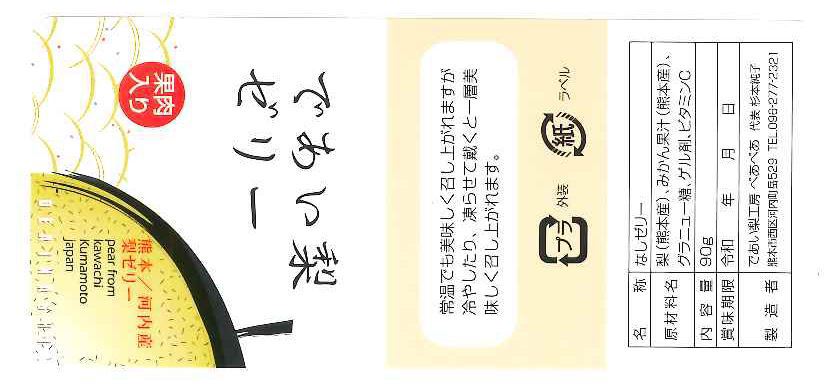 果肉
入り
であい梨
ゼリー
熊本／河内産
梨ゼリー
pear from
kawachi
Kumamoto
Japan
常温でも美味しく召し上がれますが
冷やしたり、凍らせて戴くと一層美
味しく召し上がれます。
プラ 外装
紙 ラベル
名称 なしゼリー
原材料名 梨(熊本産)、みかん果汁(熊本産)、
グラニュー糖、ゲル剤、ビタミンC
内容量 90g
賞味期限 令和 年 月 日
製造者 であい梨工房 ぺあぺあ 代表 杉本純子
熊本市西区河内町岳529 TEL.096-277-2321